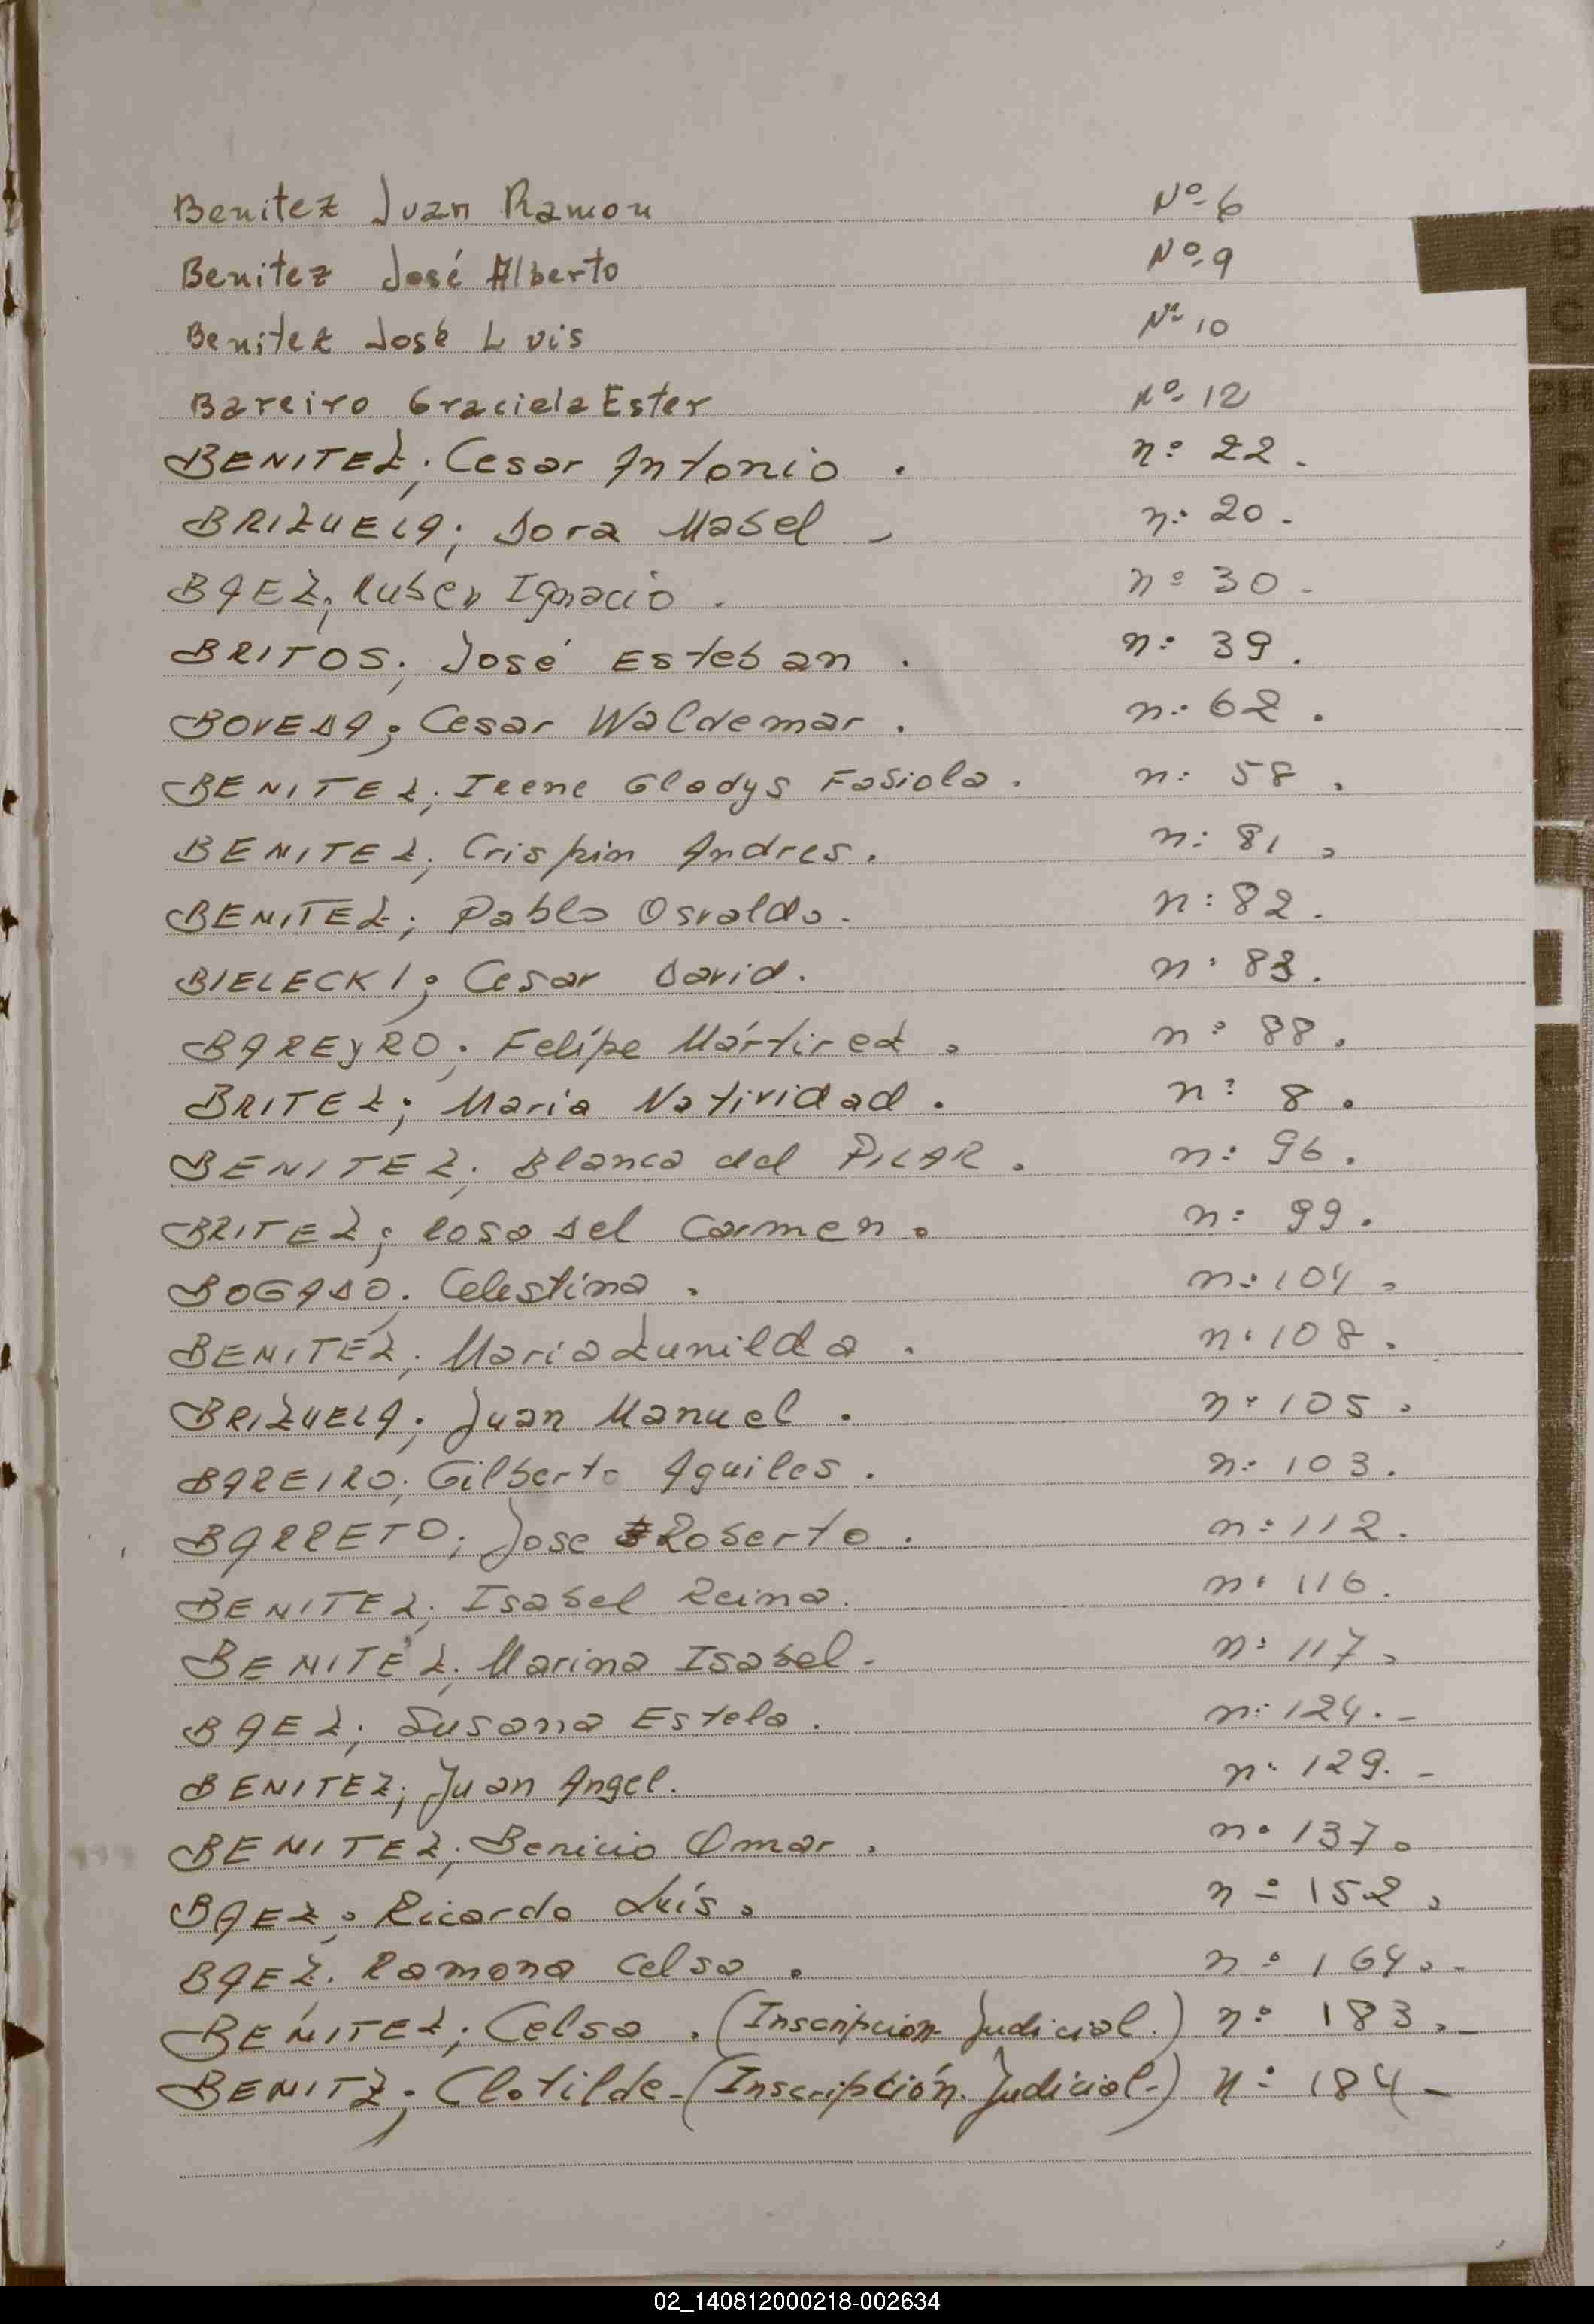 Benitez Juan Ramon Nº 6
Benitez José Alberto Nº 9
Benitez José Luis Nº 10
Bareiro Graciela Ester Nº 12
BENITEZ; Cesar Antonio. nº 22.
BRIZUELA; Dora Mabel - nº 20.
BAEZ; Ruben Ignacio. nº 30.
BRITOS; José Esteban. nº 39.
BOVEDA; Cesar Waldemar. nº 62.
BENITEZ; Irene Gladys Fabiola. nº 58.
BENITEZ; Crispin Andres. nº 81.
BENITEZ; Pablo Osvaldo. nº 82.
BIELECKI; Cesar David. nº 83.
BAREyRO; Felípe Mártirez. nº 88.
BRITEZ; Maria Natividad. nº 8.
BENITEZ; Blanca del PILAR. nº 96.
BRITEZ; Rosa del Carmen. nº 99.
BOGADO; Celestina. nº 104.
BENITEZ; Maria Zunilda. nº 108.
BRIZUELA; Juan Manuel. nº 105.
BAREIRO; Gilberto Aquiles. nº 103.
BARRETO; Jose Roberto. nº 112.
BENITEZ; Isabel Reina. nº 116.
BENITEZ; Marina Isabel. nº 117.
BAEZ; Susana Estela. nº 124.-
BENITEZ; Juan Angel. nº 129.-
BENITEZ; Benicio Omar. nº 137.
BAEZ; Ricardo Luís. nº 152.
BAEZ; Ramona Celsa. nº 164.-
BENITEZ; Celsa. (Inscripcion Judicial.) nº 183.-
BENITZ; Clotilde-(Inscripción Judicial-) nº 184-
02_140812000218-002634